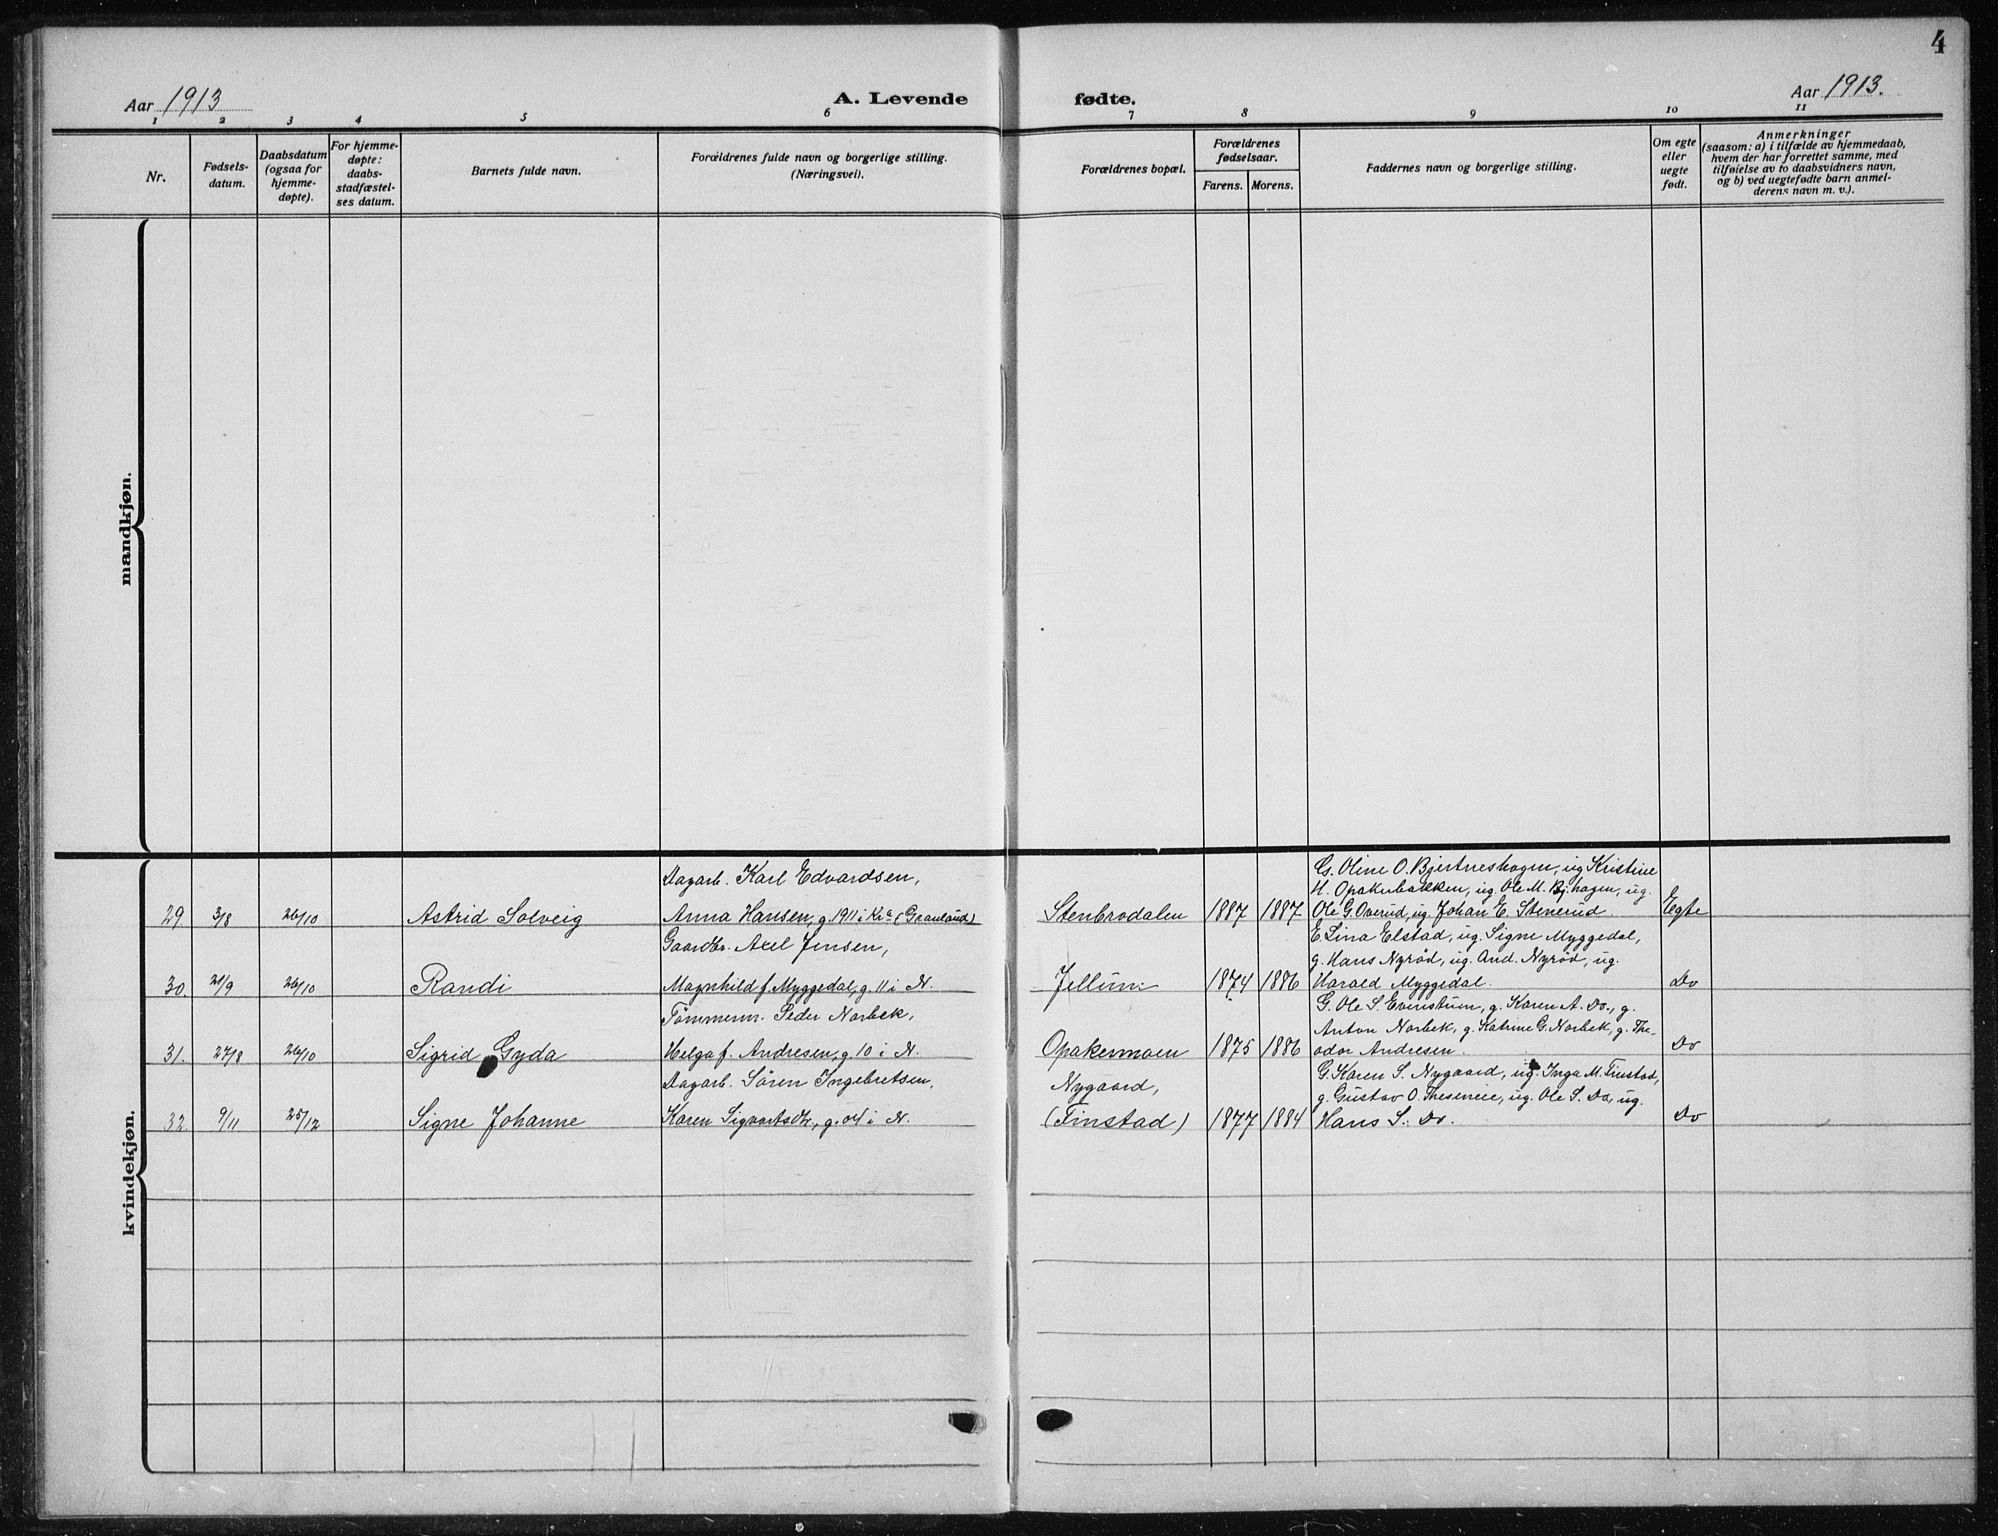 4
Aar 1913
A. Levende fødte.
Aar 1913.
1 2 3 4 5 6 7 8 9 10 11
Nr.
Fødsels-
datum.
Daabsdatum
(ogsaa for
hjemme-
døpte).
For hjemme-
døpte:
daabs-
stadfæstel-
ses datum.
Barnets fulde navn.
Forældrenes fulde navn og borgerlige stilling.
(Næringsvei).
Forældrenes bopæl.
Forældrenes
fødselsaar.
Farens. Morens.
Faddernes navn og borgerlige stilling.
Om egte
eller
uegte
født.
Anmerkninger
(saasom: a) i tilfælde av hjemmedaab,
hvem der har forrettet samme, med
tilføielse av to daabsvidners navn,
og b) ved uegtefødte barn anmel-
derens navn m. v.).
mandkjøn.
kvindekjøn.
Dagarb. Karl Edvardsen,
G. Oline O. Bjertneshagen, ug Kristine
H. Opakerbakken, ug. Ole M. Bj.hagen, ug.
29 3/8 26/10 Astrid Solveig Anna Hansen, g. 1911 i Kra (Granlaud) Stenbrodalen 1887 1887 Ole G. Overud, ug. Johan E. Stenerud. Egte
Gaardbr. Axel Jensen,
E. Lina Elstad, ug. Signe Myggedal,
g. Hans Nyrød, ug. And. Nyrød, ug.
30. 21/9 26/10 Randi Magnhild f. Myggedal, g. 11 i N. Jellum: 1874 1886 Harald Myggedal. Do
Tømmerm. Peder Norbek,
G. Ole S. Evenstum, g. Karen A. Do., g.
Anton Norbek, g. Katrine G. Norbek, g. The-
31. 27/8 26/10 Sigrid Gyda Helga f. Andresen, g. 10 i N. Opakermoen 1875 1886 odor Andresen. Do
Dagarb. Søren Ingebretsen,
Nygaard,
G. Karen S. Nygaard, ug. Inga M. Finstad,
g. Gustav O. Theseneie, ug. Ole S. Do, ug.
32 9/11 25/12 Signe Johanne Karen Sigvartsdtr, g. 04 i N. (Finstad) 1877 1884 Hans S. Do. Do